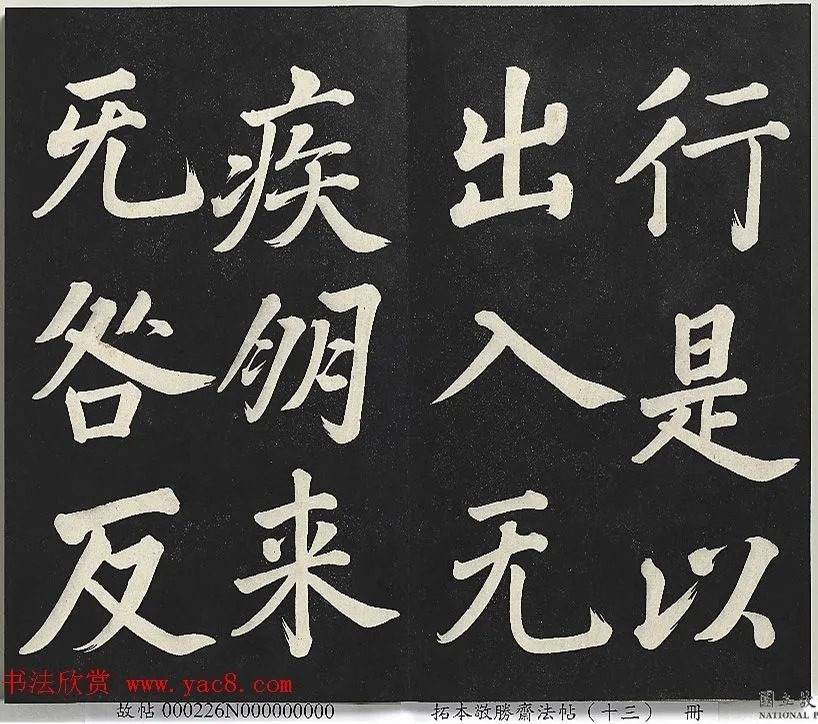 行是以
出入无
疾朋来
无咎反
书法欣赏 www.yac8.com
故帖 000226N000000000
拓本敬勝齋法帖（十三） 冊
國立故
NATIONAL P